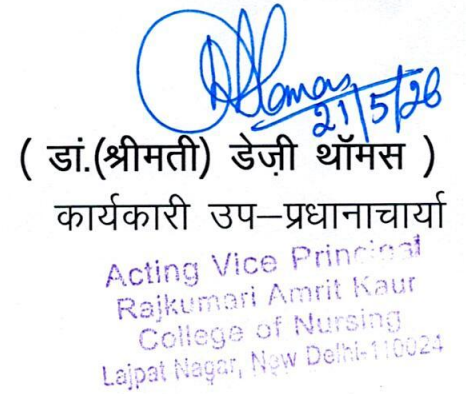 21/5/26
( डां.(श्रीमती) डेज़ी थॉमस )
कार्यकारी उप–प्रधानाचार्या
Acting Vice Principal
Rajkumari Amrit Kaur
College of Nursing
Lajpat Nagar, New Delhi-110024